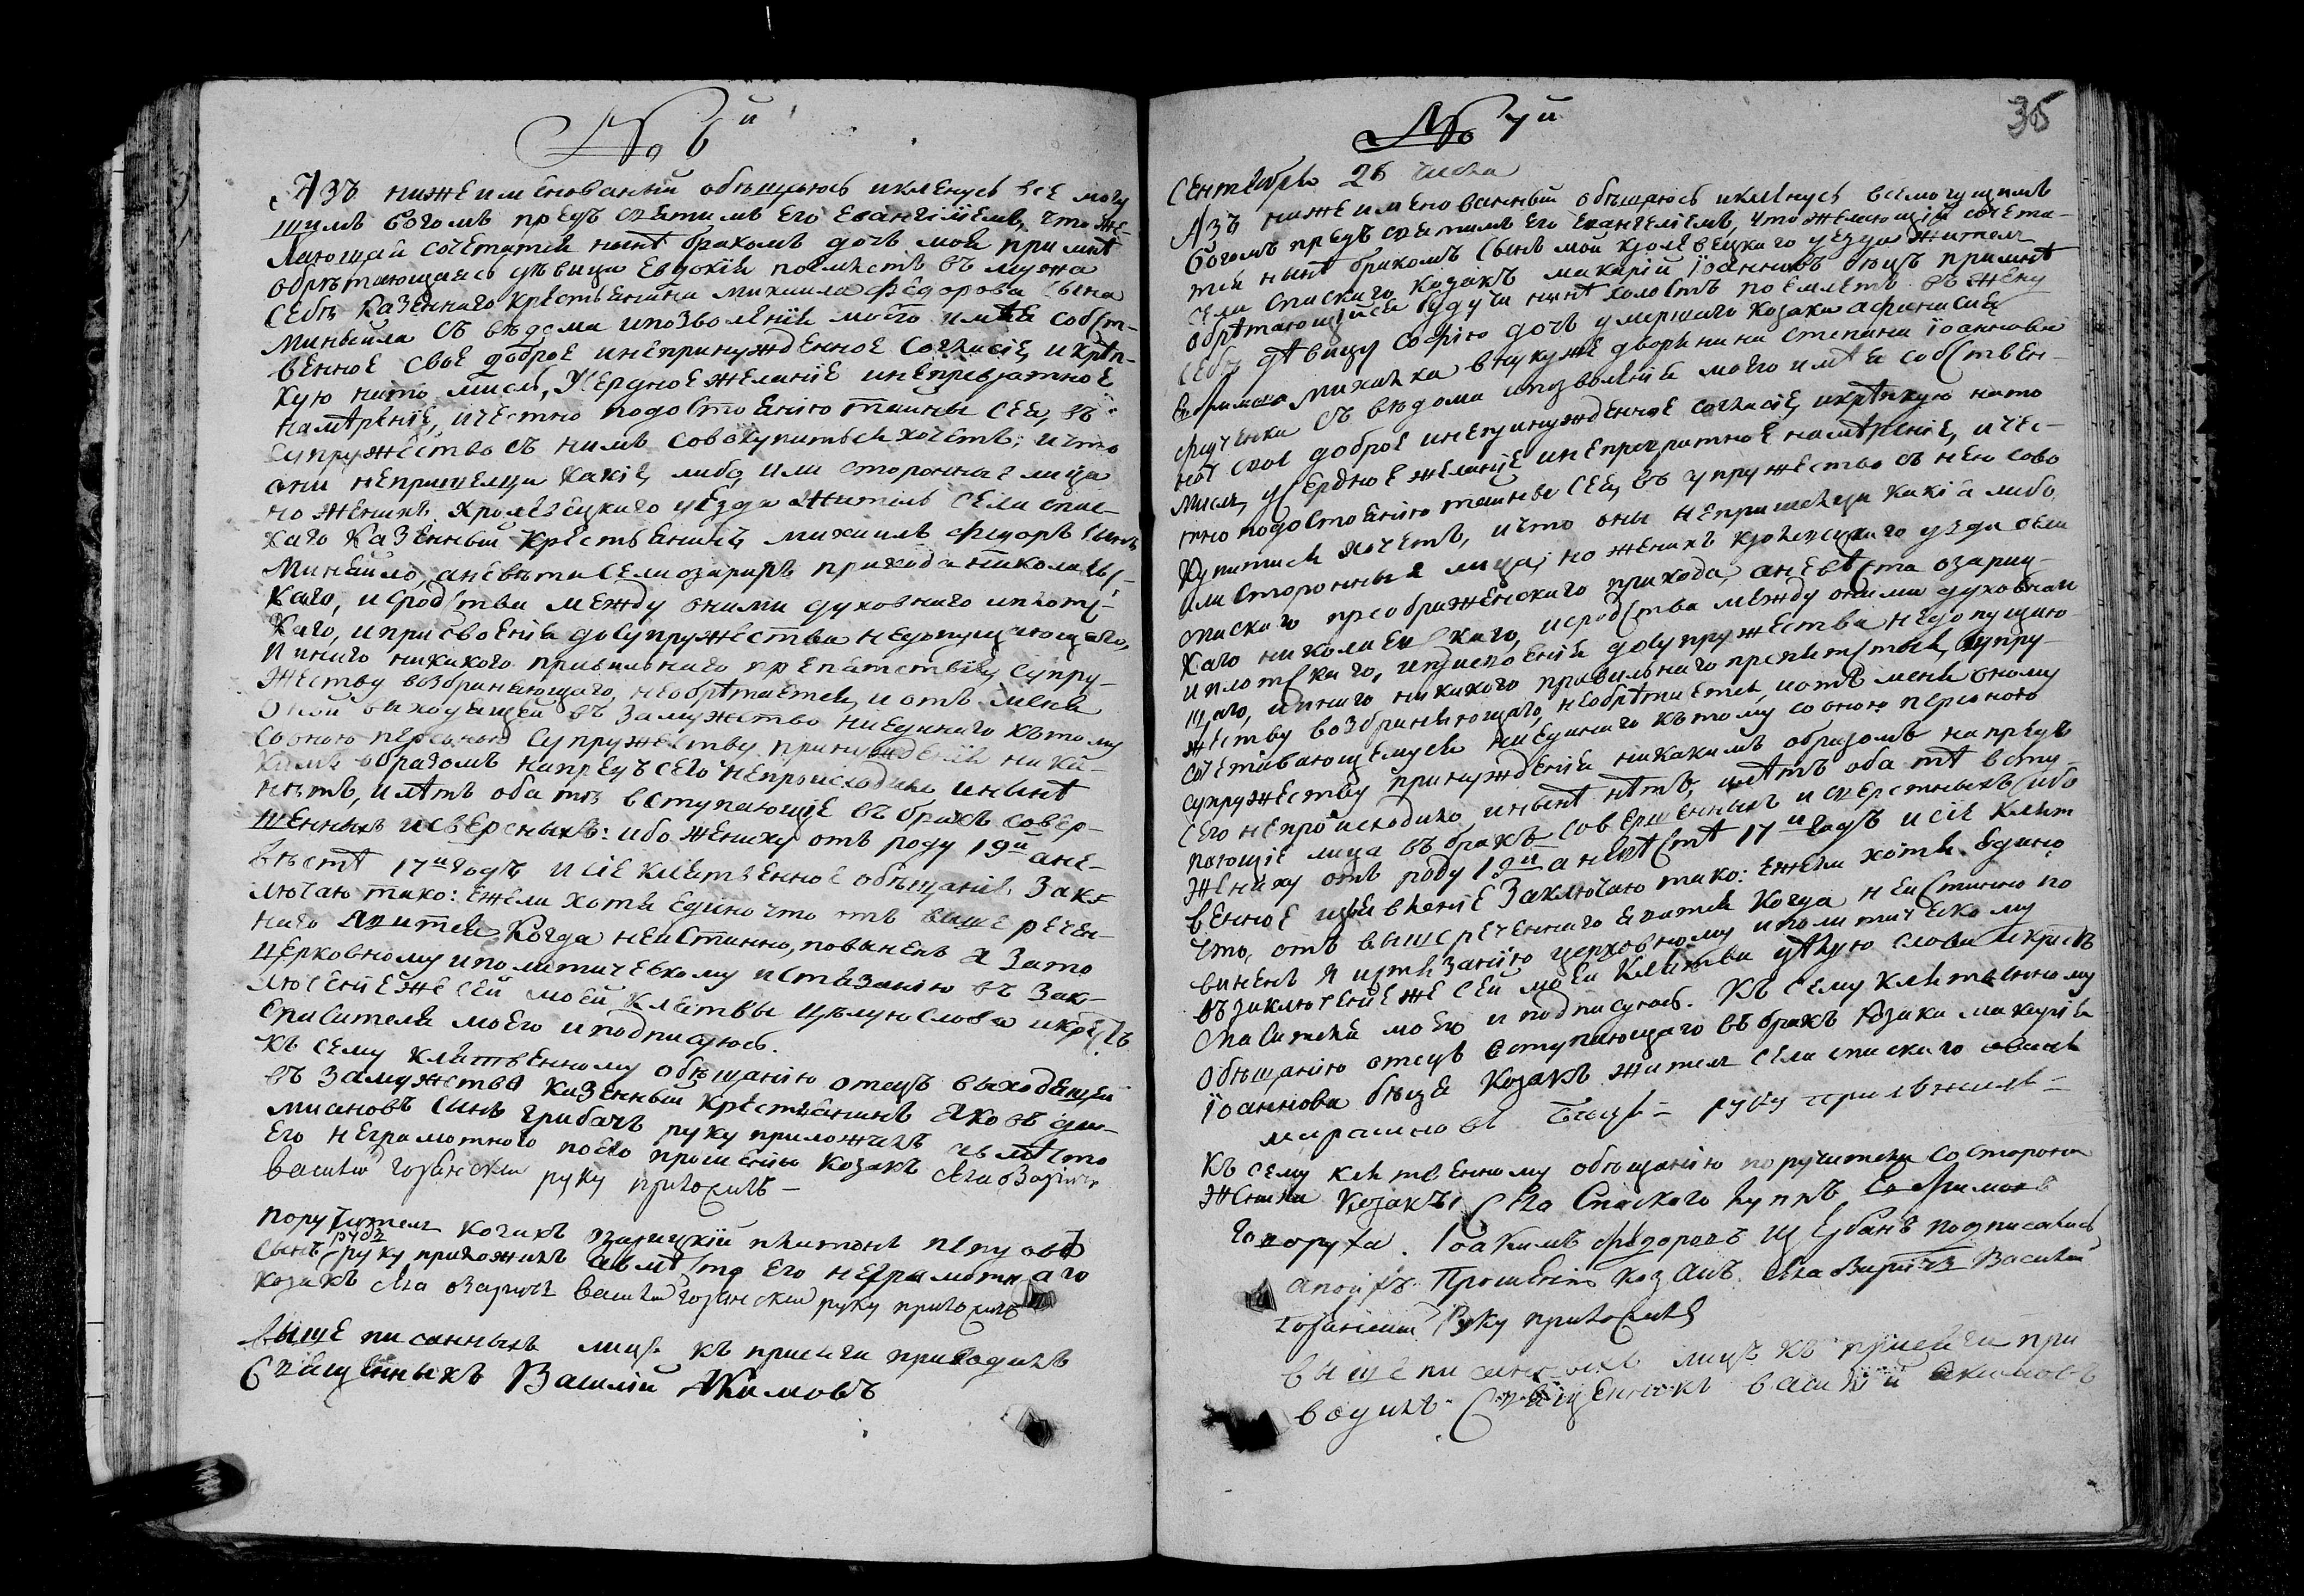 № 6й
Азъ нижеименованый обѣщаюсь икленусь всемогу
щимъ Богомъ предъ святимъ его евангелиемъ, что же-
лающая сочетатся нынѣ бракомъ дочъ моя при мнѣ
обрѣтающаясь дѣвица Евдокия поемлетъ въ мужа
себѣ казенного крестьянина михаила федорова сына
минѣйла съ вѣдома ипозволенїя моего имѣя собст-
венное свое доброе инепринужденное согласїе, икрѣп-
кую нато мисль, усердное желанїе инепревратное
намѣренїе, ичестно подостоянїю тайны сея, въ
супружество съ нимъ совокупиться хочетъ; ичто
они непришелци какїе либо, или сторонные лица
но женихъ кролевецкого уезда житель села спас-
каго казенный крестьянинъ михаилъ федоръ сынъ
минѣйло, аневѣста села озаричъ прихода николаевс-
каго, исродства между оними духовнаго иплотс-
каго, иприсвоенїя досупружества недопущающаго,
и инаго никакого правильнаго препятствїя супру-
жеству возбраняющаго, необрѣтается, и отъ мене
оной выходящей въ замужство ниединаго къ тому
сооною персоною супружеству принужденїя ника-
кимъ образомъ напредъ сего непроисходило инынѣ
нѣтъ, илѣтъ оба тѣ вступающїе въ бракъ совер-
шенныхъ исверсныхъ: ибо жениху отъ роду 19й ане-
вѣстѣ 17й годъ и сїе клятвенное обѣщанїе зак-
лючаю тако: ежели хотя едино что отъ выше речен-
наго явится когда неистинно, повыненъ я зато
церковному иполитическому истязанїю въ зак-
люченїе же сей моей клятвы цѣлую слова икрестъ
спасителя моего иподписуюсь.
къ сему клятвенному обѣщанїю отецъ выходящей
въ замужство казенный крестьянинъ яковъ дми-
миановъ синъ грибачъ руку приложилъ авмѣсто
его неграмотного поего прошенїю козакъ села озаричъ
василий руку приложилъ —
поручителъ козакъ озарицкїй платонъ
сынъ рудъ руку приложилъ авмѣсто его неграмотнаго
козакъ села озаричъ василий руку приложилъ
выше писанныхъ лицъ къ присяги приводилъ
Священныкъ Василий Акимовъ
35
№ 7й
Сентября 26 числа
Азъ нижеименованный обѣщаюсь икленусь всемогущимъ
богомъ предъ святимъ его евангелїемъ, что желающїй сочета-
тся нынѣ бракомъ сынъ мой кролевецкого уезда житель
села спаского козакъ макарїй Їоанновъ бѣцъ при мнѣ
обрѣтающїйся будучи нынѣ холостъ поемлетъ въ жену
себѣ дѣвицу софїю дочъ умершаго козака афанасия
михалка внукуже дворянина степана їоаннова
съ вѣдома ипозволенїя моего имѣя собствен-
ное свое доброе инепринужденное согласїе, икрѣпкую нато
мисль, усердное желанїе инепревратное намѣренїе, ичес-
тно подостоянїю тайны сея, въ супружество съ нею сово
купится хочетъ, ичто оны непришелци какїя либо,
или сторонныя лица; но женихъ кролевецкого уезда села
спаского преображенского прихода, аневѣста озариц-
каго николаевскаго, исродства между оними духовнаго
иплотскаго, иприсвоенїя досупружества недопущаю-
щаго, иинаго никакого правилънаго препятствїя, супру
жеству возбраняющаго, необрѣтается, иотъ мене оному
сочетавающемуся ниединаго къ тому сооною персоною
супружеству принужденїя никакимъ образомъ напредъ
сего непроисходило, инынѣ нѣтъ, илѣтъ оба тѣ всту-
пающїе лица въ бракъ совершенныхъ и сверстныхъ ибо
жениху отъ роду 19й аневѣстѣ 17й годъ и сїе клят
венное изъявленїе заключаю тако: ежели хотя едино
что, отъ вышереченнаго явится когда неистинно по
виненъ я истязанїю церковному иполитическому
въ заключенїе же сей моей клятвы цѣлую слова икрестъ
спасителя моего и подписуюсь. Къ сему клятвенному
обѣщанїю отецъ вступающаго въ бракъ козака макарїя
їоаннова бѣцъ козакъ житель села спаского
бѣцъ — руку приложилъ —
къ сему клятвенному обѣщанїю поручители состорони
жениха козакы села Спаского
говоруха. Їоакимъ федоровъ Щербанъ подписалысь
апоихъ прошенїю козакъ села озаричъ Василий
руку приложилъ
вышеписанныхъ лицъ къ присяги при
водилъ. Священныкъ василий акимовъ